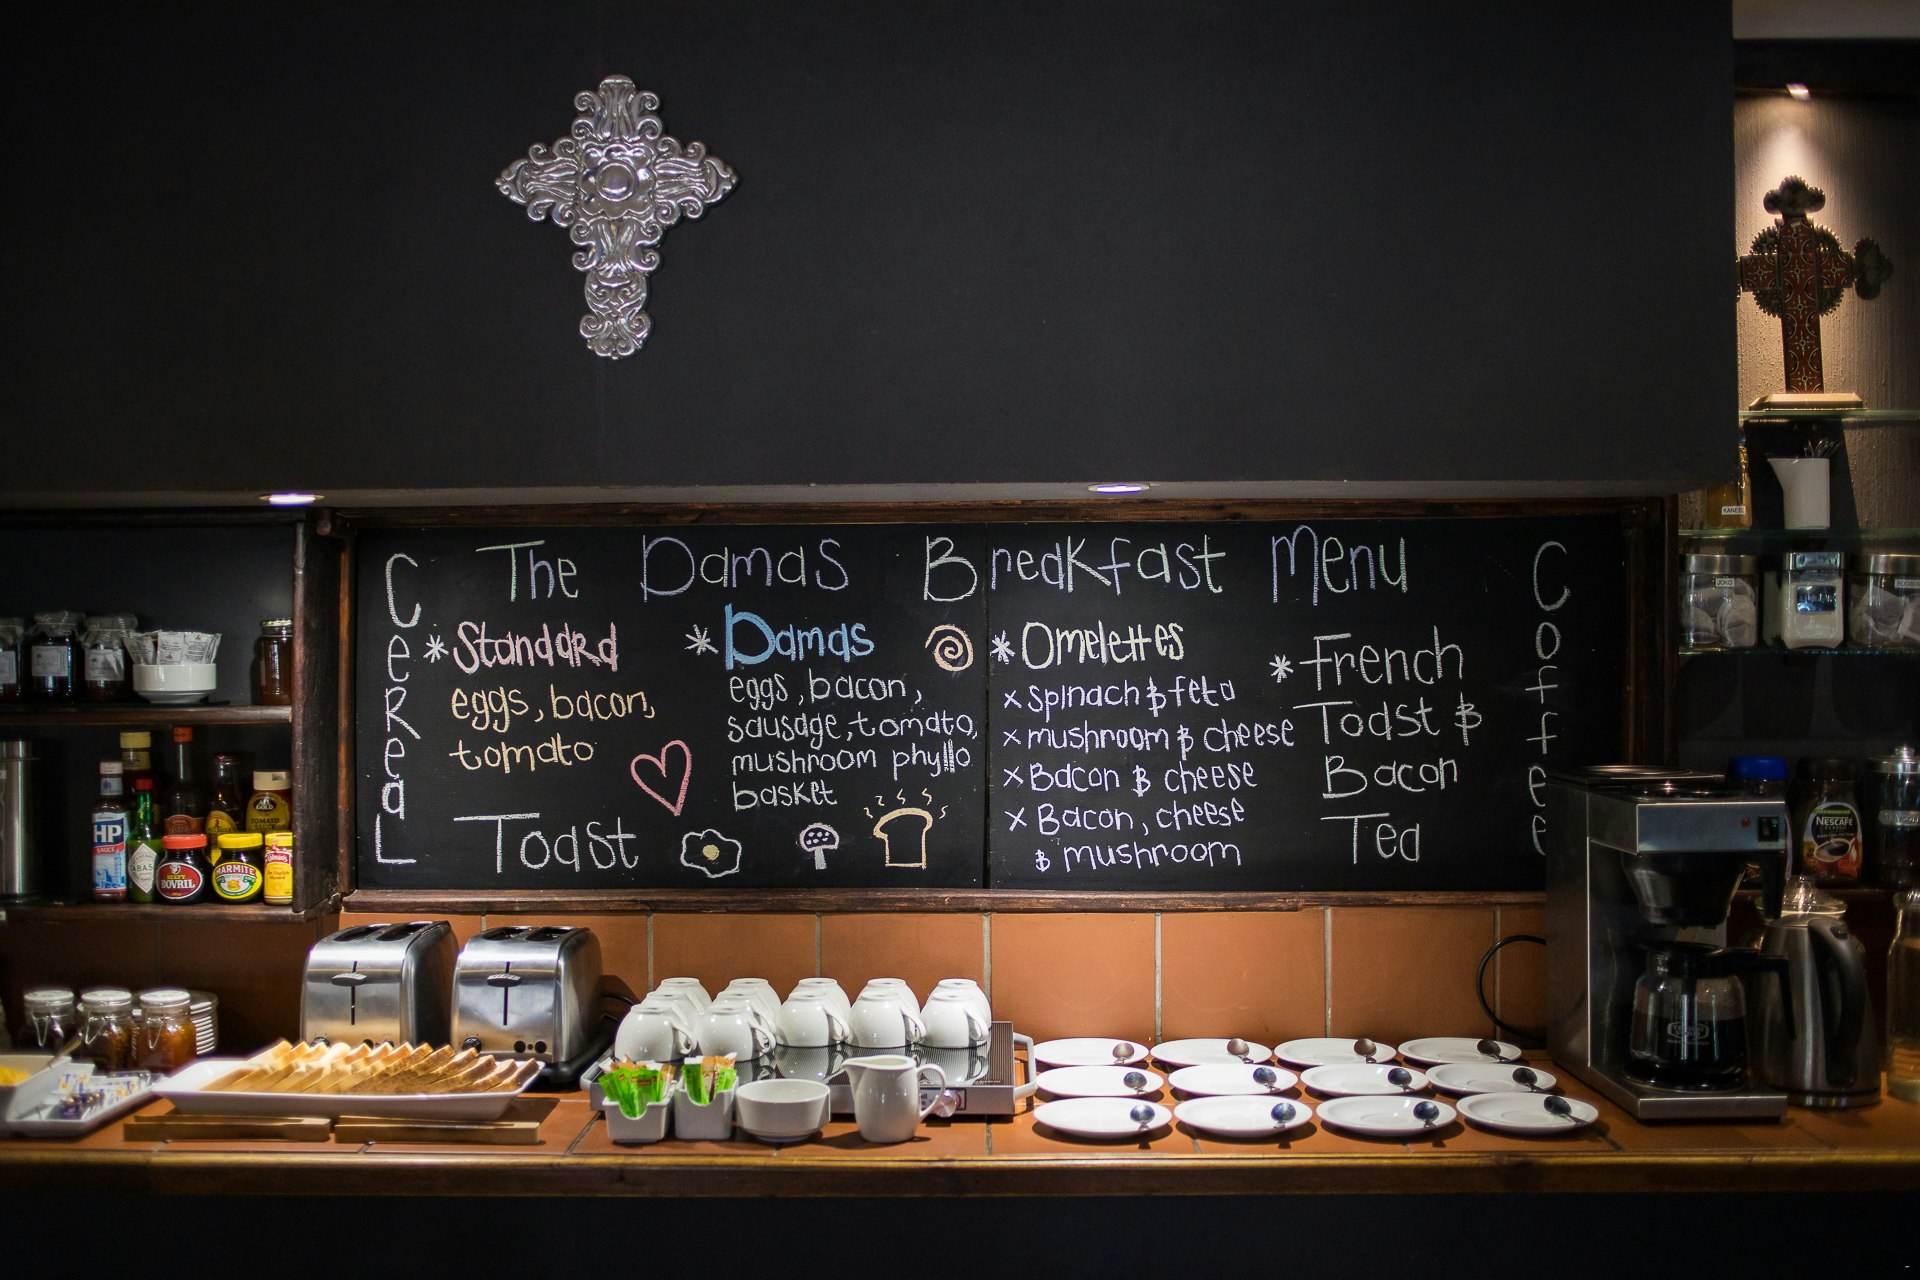 The Damas Breakfast Menu
Cereal
*Standard
eggs, bacon,
tomato
Toast
*Damas
eggs, bacon,
sausage, tomato,
mushroom phyllo
basket
*Omelettes
x spinach & feta
x mushroom & cheese
x Bacon & cheese
x Bacon, cheese
& mushroom
*French
Toast &
Bacon
Tea
Coffee
HP
SAUCE
BOVRIL
MARMITE
GOLD
TOMATO
KANEEL
JOKO
NESCAFE
CLASSIC